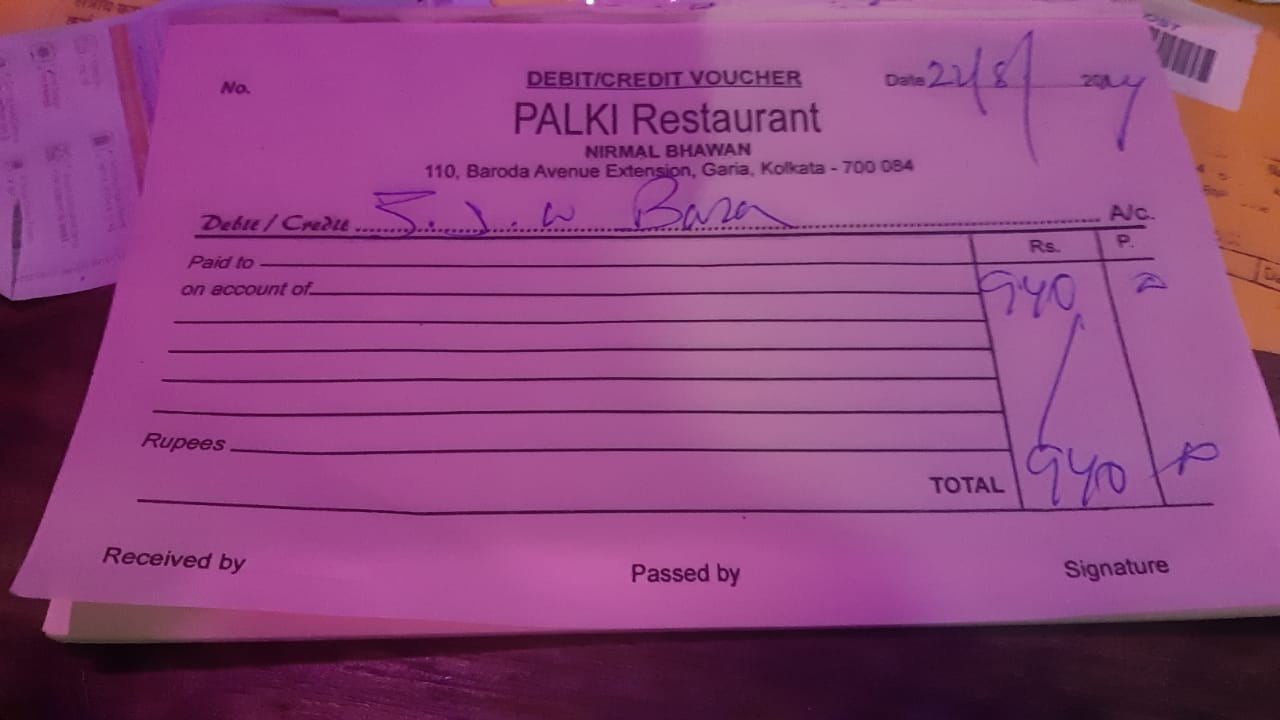 No.
DEBIT/CREDIT VOUCHER
Date 2024
PALKI Restaurant
NIRMAL BHAWAN
110, Baroda Avenue Extension, Garia, Kolkata - 700 084
Debit / Credit S. J. w A/c.
Rs. P.
Paid to
on account of 940
Rupees
TOTAL 940
Received by Passed by Signature